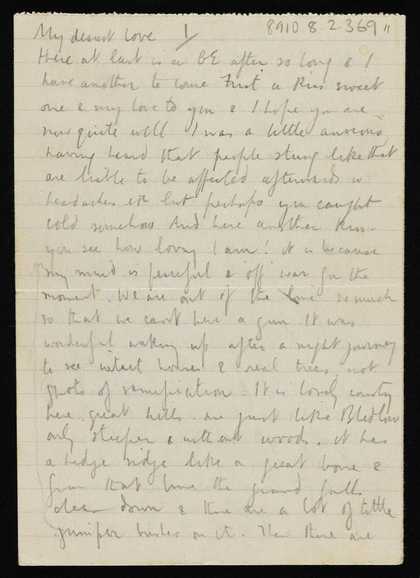 8910 8.2.369 11
My dearest Love 1/
Here at last is a GE after so long & I
have another to come First a kiss sweet
one & my love to you & I hope you are
now quite well I was a little anxious
having heard that people stung like that
are liable to be affected afterwards w
headaches etc but perhaps you caught
cold somehow And here another kiss
you see how loving I am! it is because
my mind is peaceful & off war for the
moment. We are out of the line so much
so that we cant hear a gun It was
wonderful waking up after a night journey
to see intact houses & real trees, not
ghosts of It is lovely country
here great hills are just like Bledlow
only steeper & without woods. it has
a hedge ridge like a great bone &
from that bone the ground falls
clean down & there are a lot of little
juniper bushes on it. Then there are